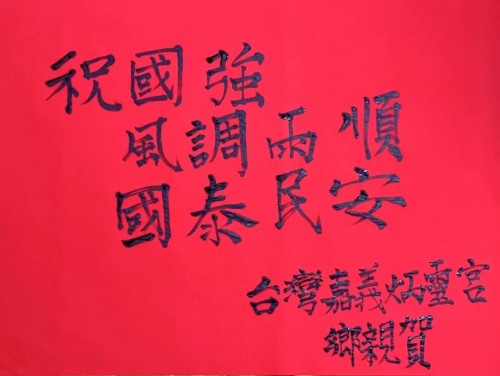 祝國強
風調雨順
國泰民安
台灣嘉義炳靈宮
鄉親賀